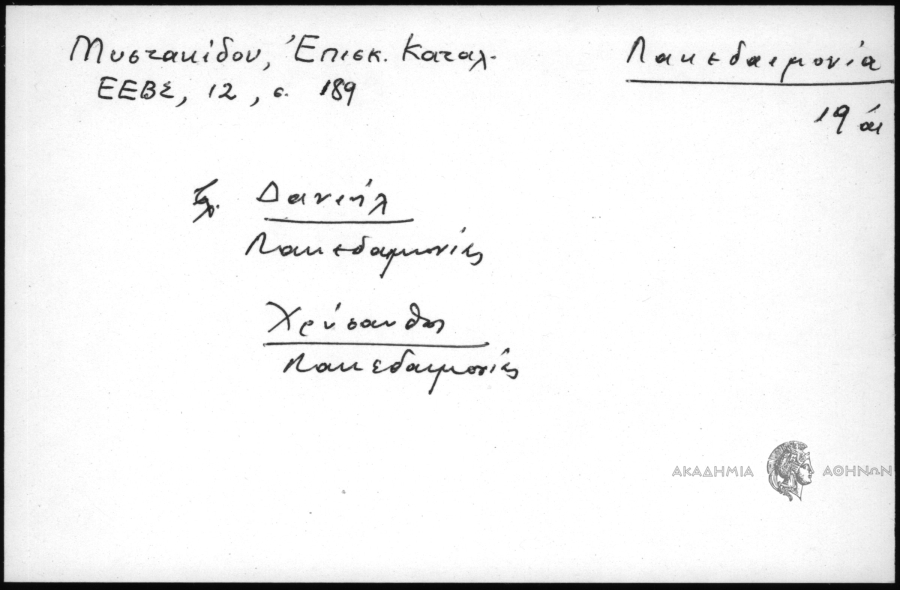 Μυστακίδου, Ἐπισκ. Καταλ.
ΕΕΒΣ, 12, σ. 189
Λακεδαιμονία
19 αι
βλ. Δανιήλ
Λακεδαιμονίας
Χρύσανθος
Λακεδαιμονίας
ΑΚΑΔΗΜΙΑ ΑΘΗΝΩΝ